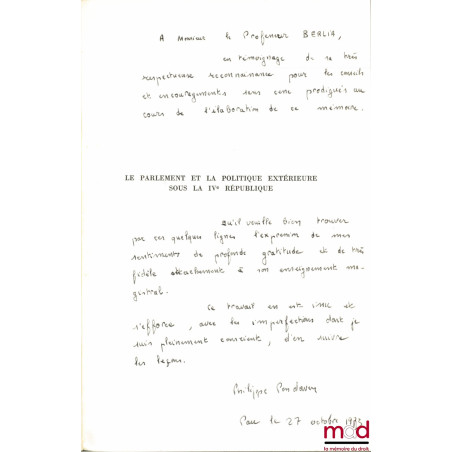 A Monsieur le Professeur BERLIA,
en témoignage de sa très
respectueuse reconnaissance pour les conseils
et encouragements sans cesse prodigués au
cours de l'élaboration de ce mémoire.
LE PARLEMENT ET LA POLITIQUE EXTÉRIEURE
SOUS LA IVe RÉPUBLIQUE
Qu'il veuille bien trouver
par ces quelques lignes l'expression de mes
sentiments de profonde gratitude et de très
fidèle attachement à son enseignement ma-
gistral.
Ce travail en est issu et
s'efforce, avec les imperfections dont je
suis pleinement conscient, d'en suivre
les leçons.
Philippe
Pau le 27 octobre 1973
mdd
la mémoire du droit